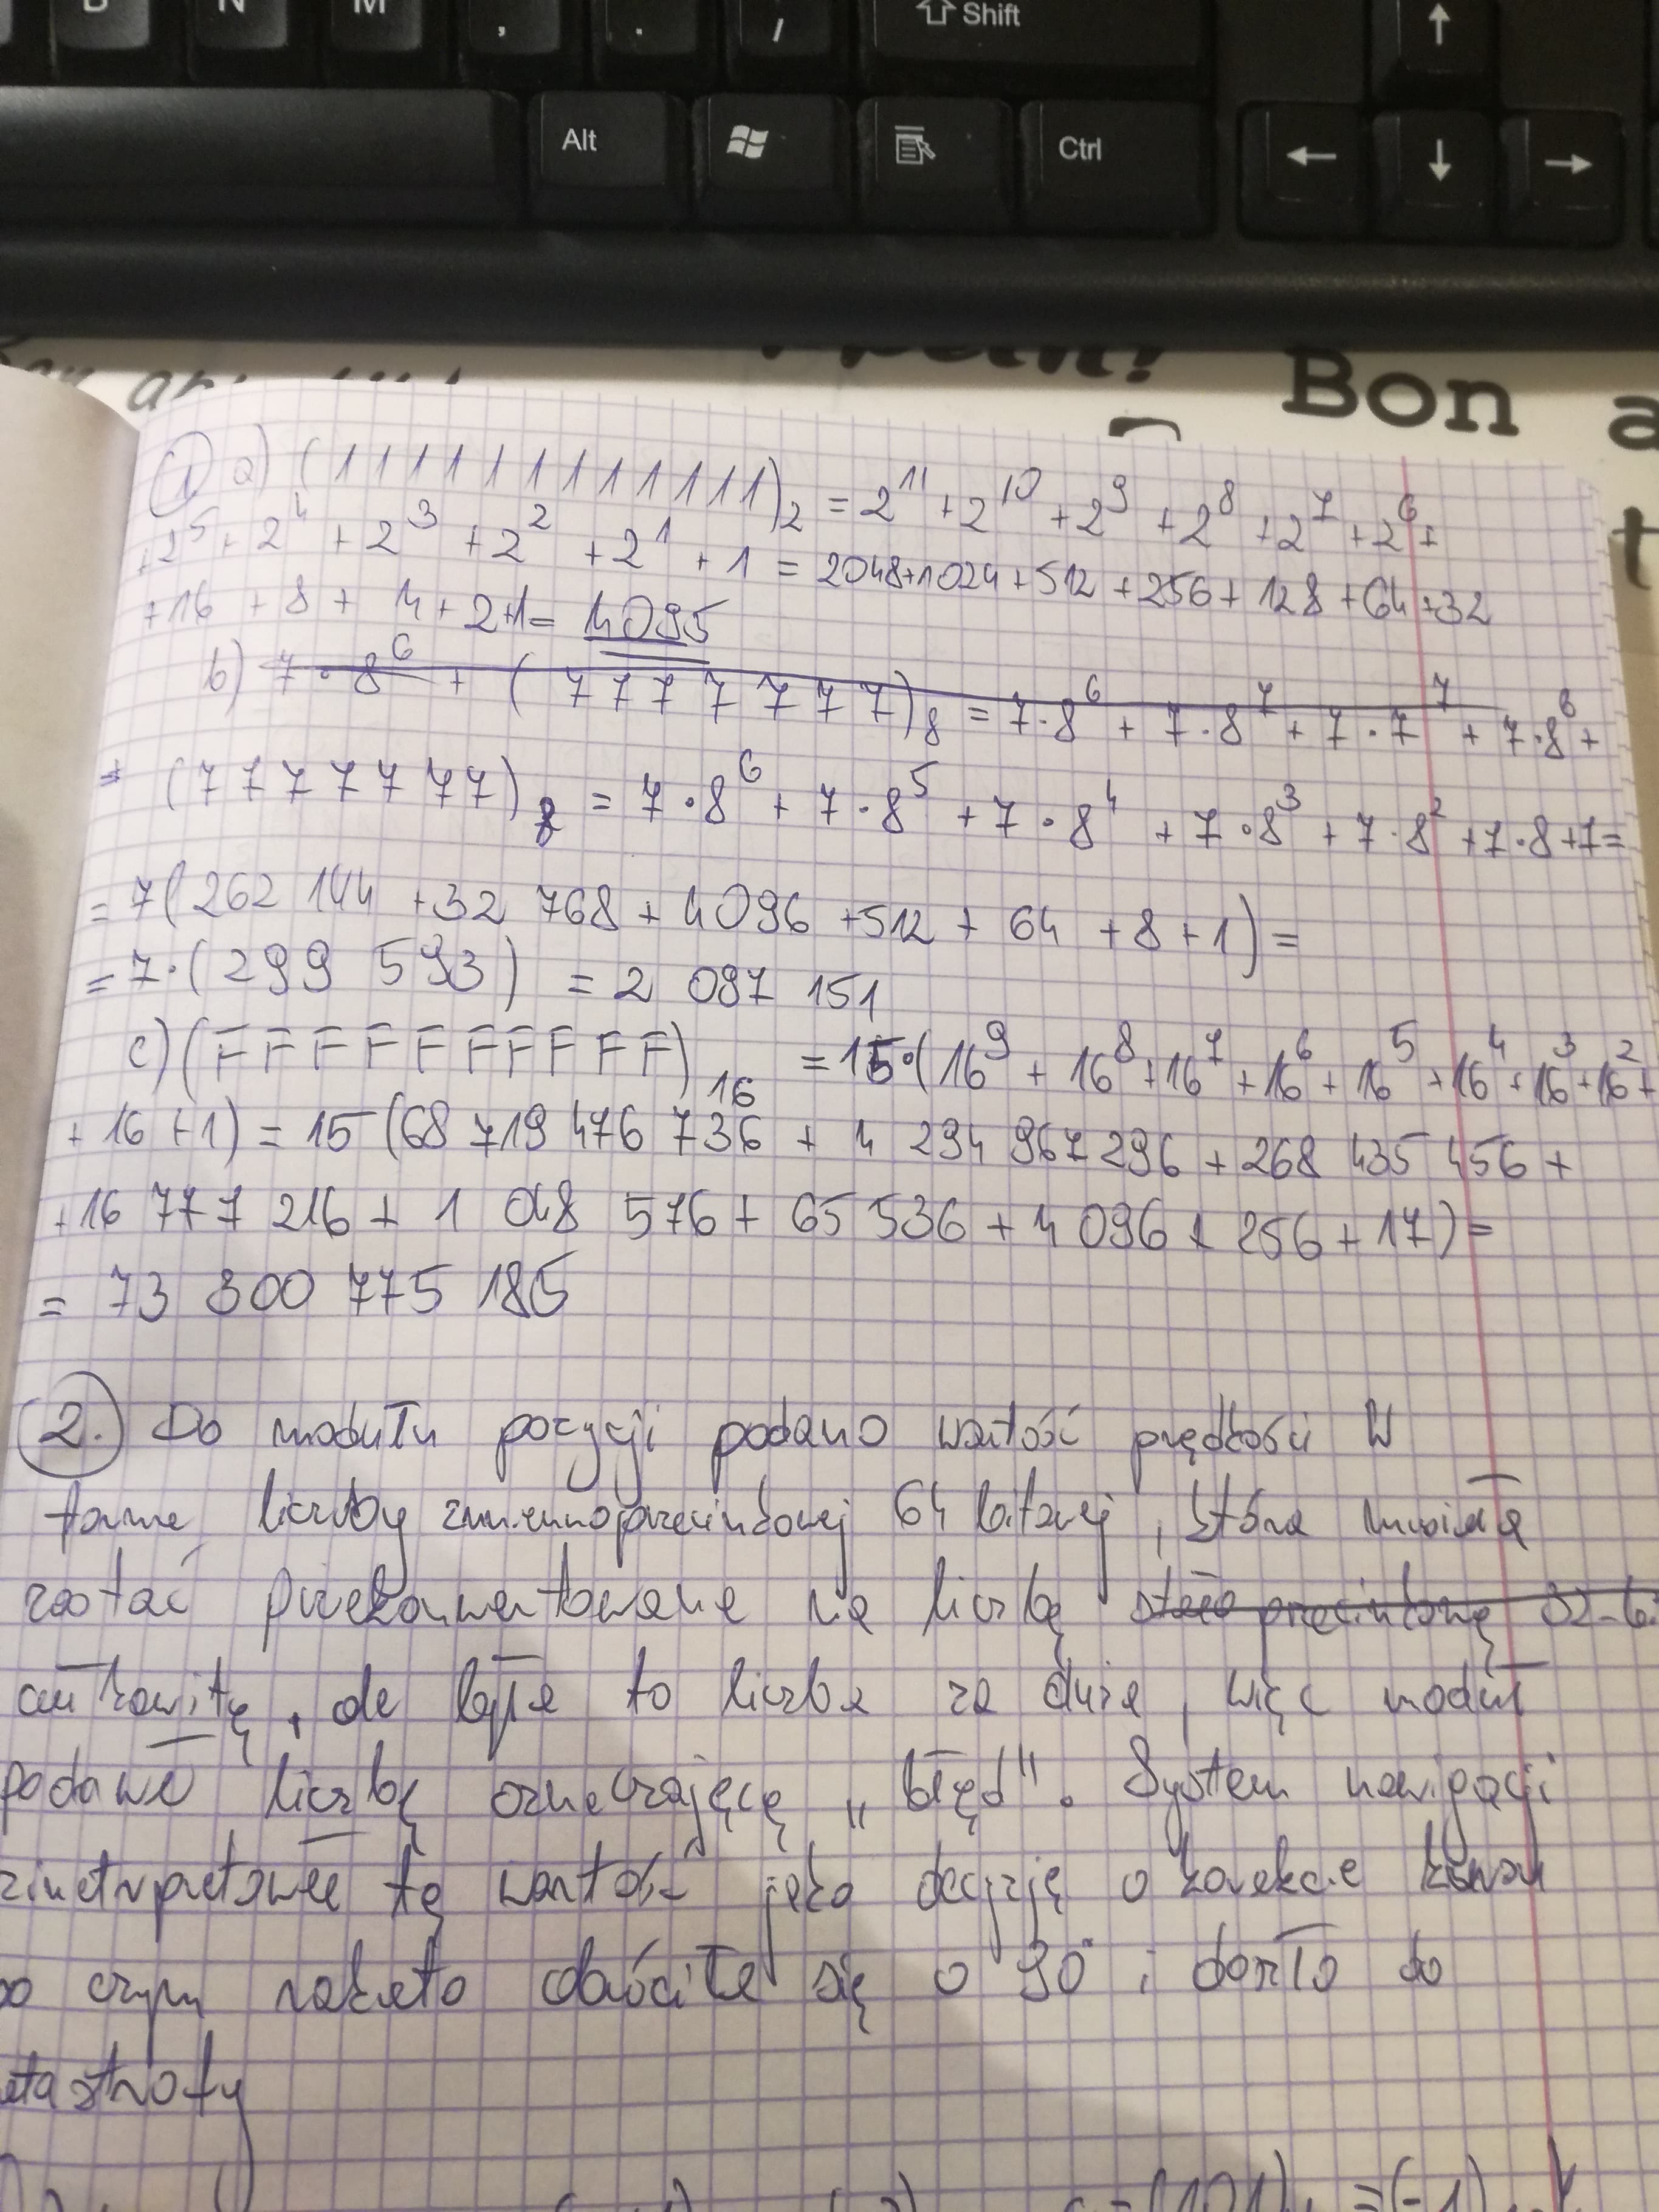 B N M , . / ⇧ Shift ↑
Alt Ctrl ← ↓ →
Bon a
t
1 a) (111111111111)₂ = 2¹¹ + 2¹⁰ + 2⁹ + 2⁸ + 2⁷ + 2⁶ +
+ 2⁵ + 2⁴ + 2³ + 2² + 2¹ + 1 = 2048+1024+512+256+128+64+32
+16 + 8 + 4 + 2+1= 4095
b) 7·8⁶ + (7777777)₈ = 7·8⁶ + 7·8⁷ + 7·7⁷ + 7·8⁶ +
= (7777777)₈ = 7·8⁶ + 7·8⁵ + 7·8⁴ + 7·8³ + 7·8² + 7·8+7=
= 7(262 144 + 32 768 + 4096 + 512 + 64 + 8 + 1) =
= 7·(299 593) = 2 097 151
c) (FFFFFFFFFF)₁₆ = 15·(16⁹ + 16⁸ + 16⁷ + 16⁶ + 16⁵ + 16⁴ + 16³ + 16² +
+ 16 + 1) = 15 (68 719 476 736 + 4 294 967 296 + 268 435 456 +
+ 16 777 216 + 1 048 576 + 65 536 + 4 096 + 256 + 17) =
= 73 300 775 185
2. Do modułu pozycji podano wartość prędkości w
formie liczby zmiennoprzecinkowej 64 bitowej, która musiała
zostać przekonwertowana na liczbę stało przecinkową 32-bi
całkowitą, ale była to liczba za duża, więc moduł
podawał liczbę oznaczającą "błąd". System nawigacji
zinterpretował tę wartość jako decyzję o korekcie kursu
po czym rakieta obróciła się o 90° i doszło do
katastrofy